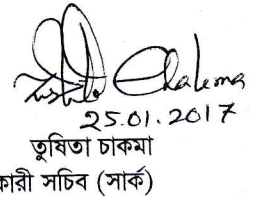 Chakma
25.01.2017
তুষিতা চাকমা
কারী সচিব (সার্ক)